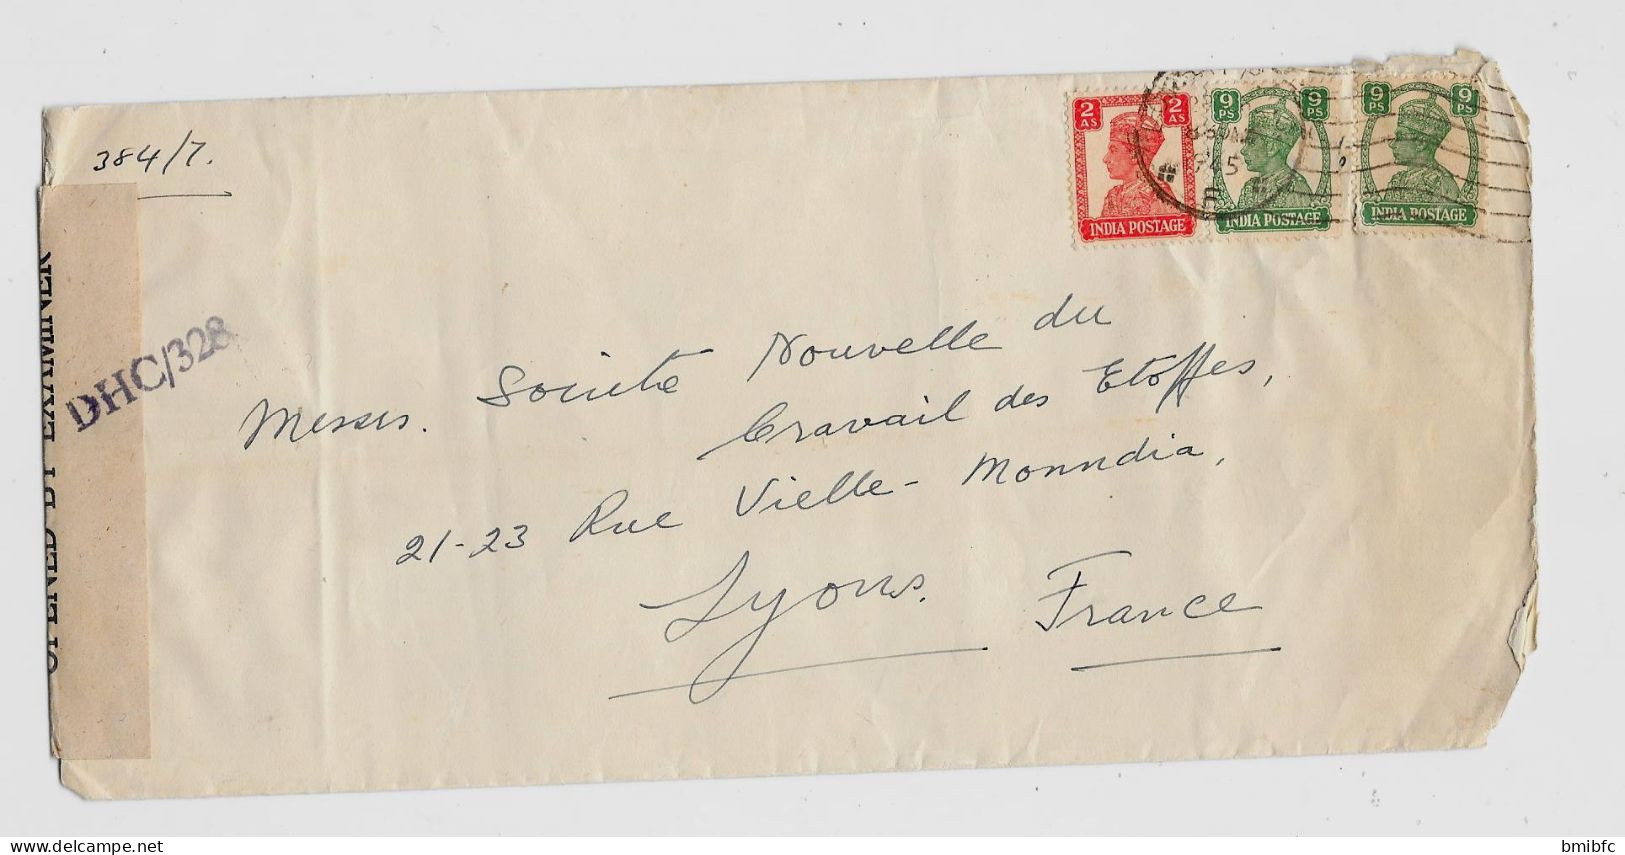 384/7.
2 AS 2 AS
INDIA POSTAGE
9 PS 9 PS
INDIA POSTAGE
9 PS 9 PS
INDIA POSTAGE
OPENED BY EXAMINER
DHC/328
Messrs. Societé Nouvelle du
Travail des Etoffes,
21-23 Rue Vielle-Monndia,
Lyons. France
bmibfc